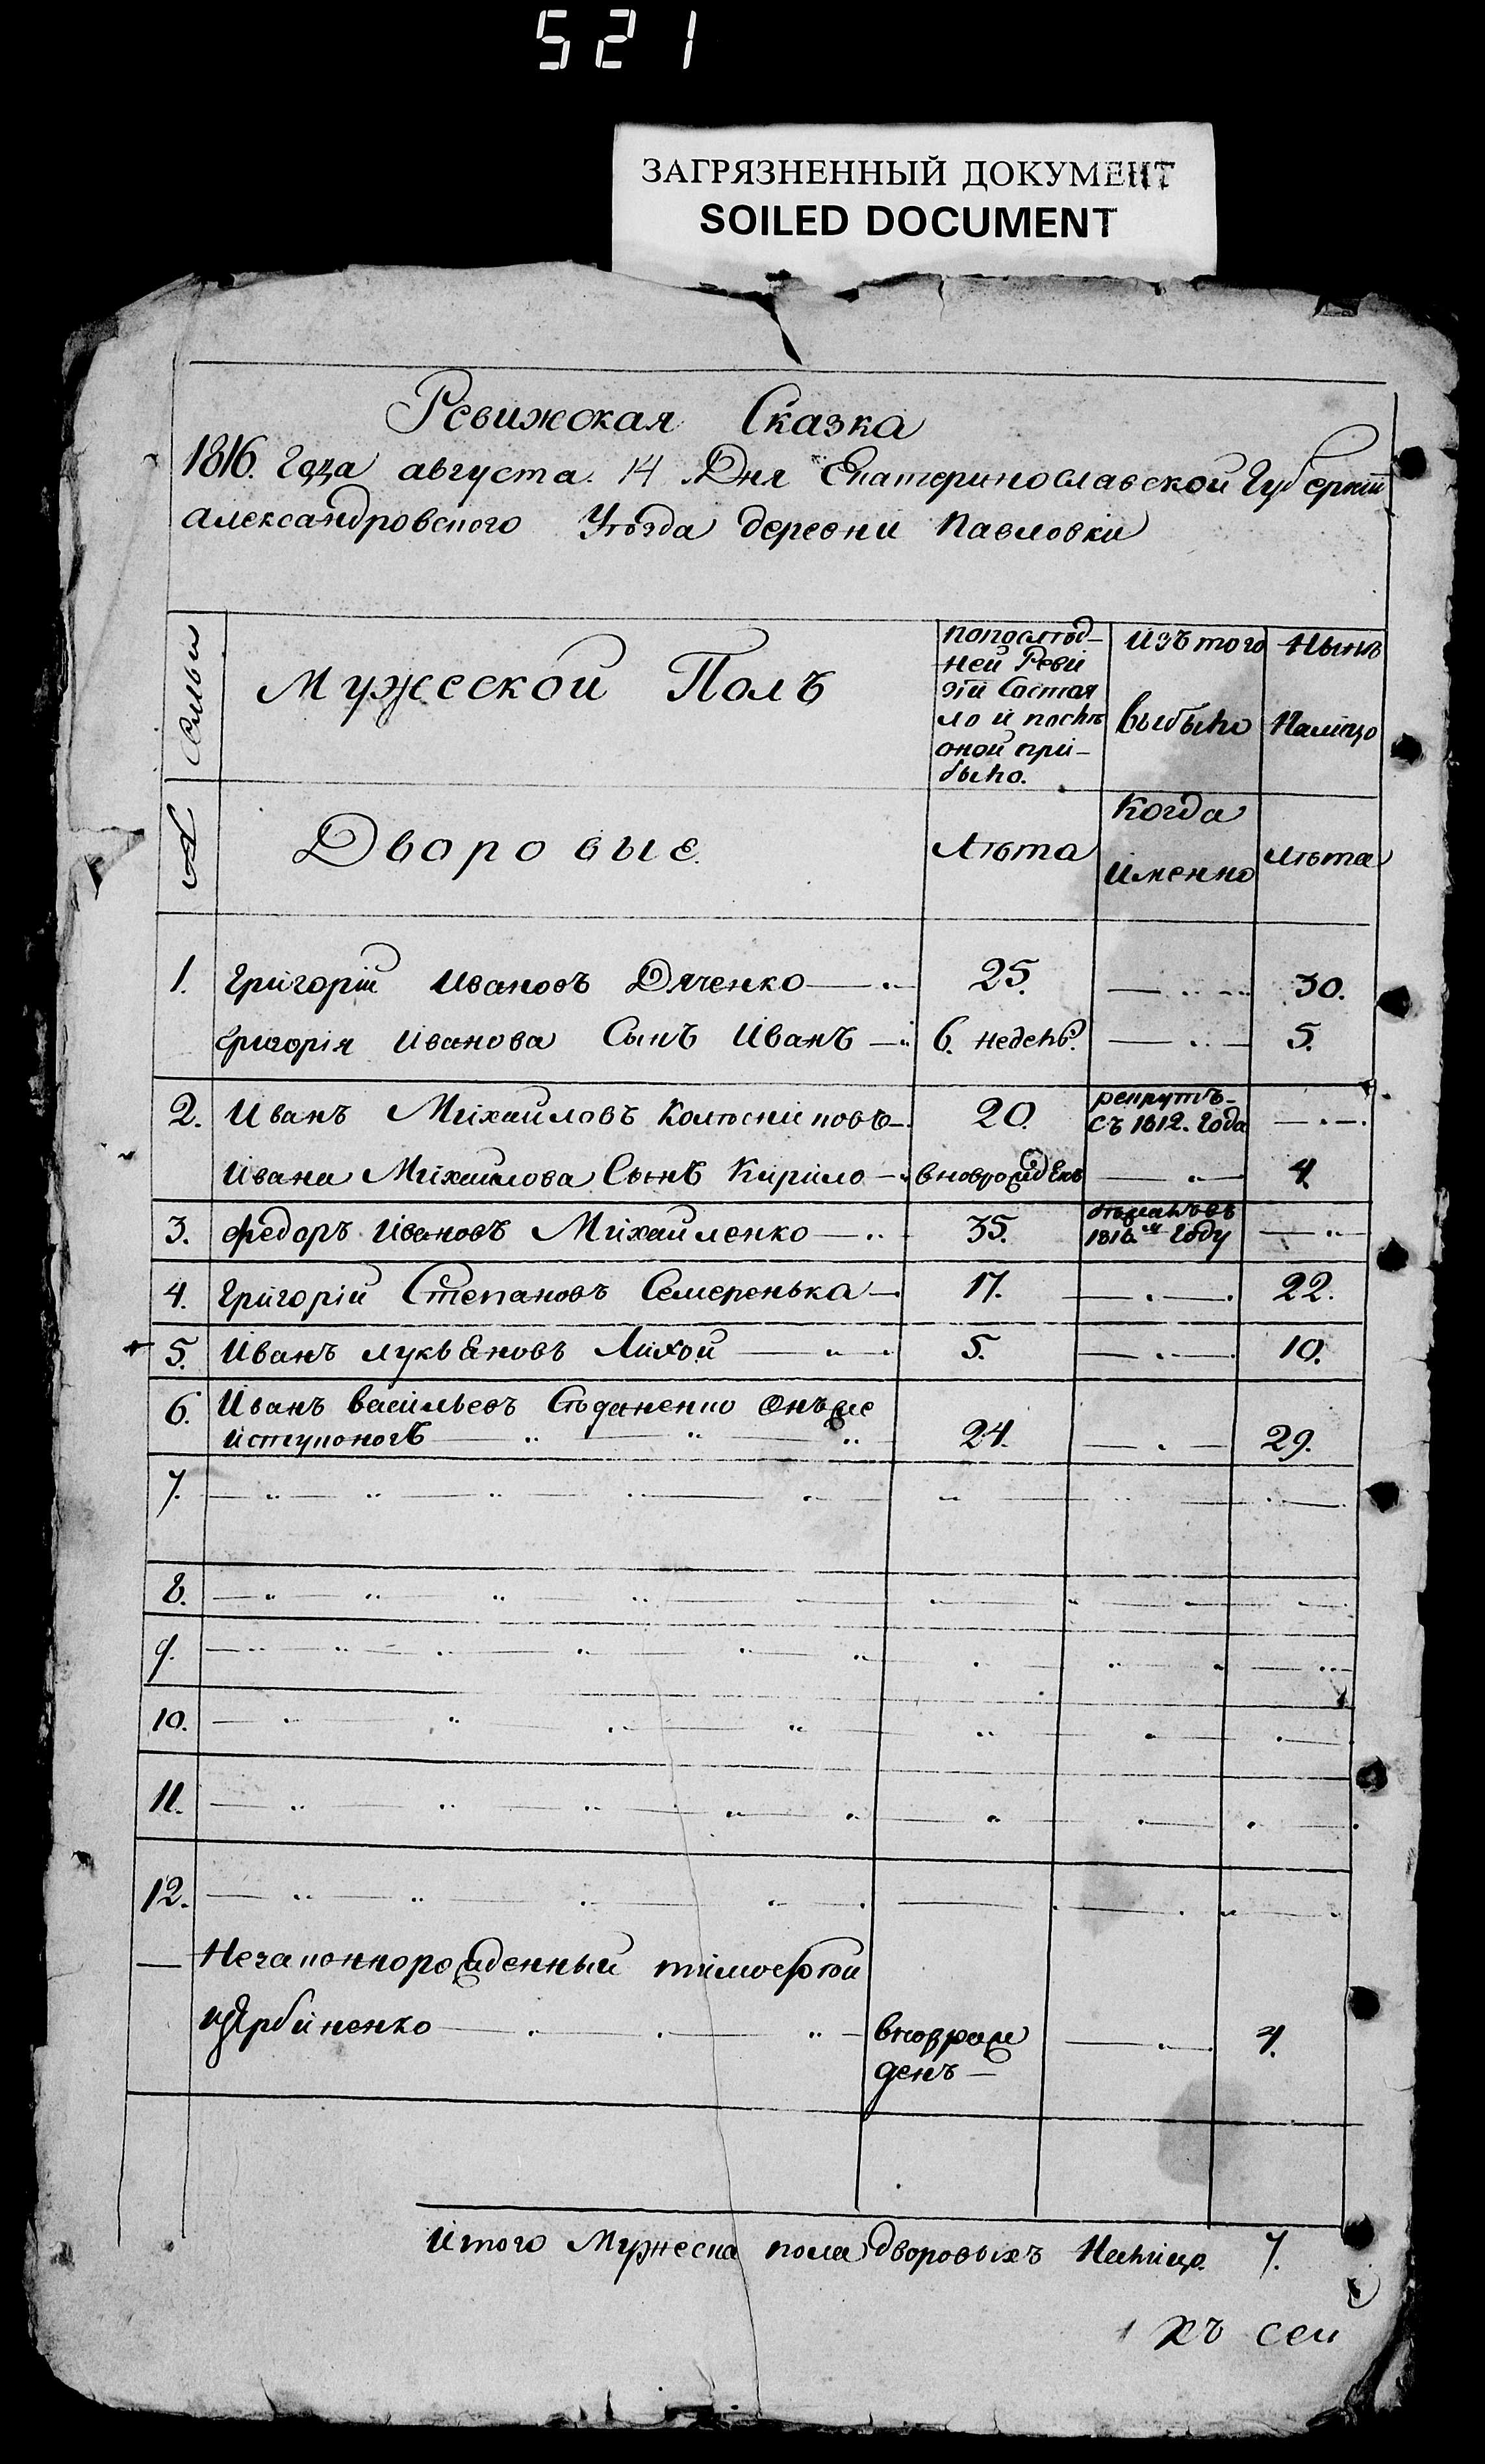 521
ЗАГРЯЗНЕННЫЙ ДОКУМЕНТ
SOILED DOCUMENT
Ревижская Сказка
1816. Года августа 14 Дня Екатеринославской Губерніи
александровского Уѣзда деревни Павловки
Семьи
Мужеской Полъ
попослѣд-
ней Реви
зіи Состоя
ло и послѣ
оной при-
было.
изътого
выбыло
Нынѣ
Налицо
Дворовые.
Лѣта
Когда
именно
Лѣта
1. Григорій Ивановъ Дяченко 25. 30.
Григорія Иванова Сынъ Иванъ 6. недель. 5.
2. Иванъ Михайловъ Колѣсниковъ 20. рекрутъ-
съ 1812. Года
Ивана Михайлова Сынъ Кирило вноврожденъ 4.
3. Федоръ Ивановъ Михайленко 35.
1816.м Году
4. Григорій Степановъ Семеренька 17. 22.
5. Иванъ лукьяновъ Лихой 5. 10.
6. Иванъ васильевъ Онъже
24. 29.
7.
8.
9.
10.
11.
12.
Незаконнорожденный тимофѣй
щербиненко вноврож
денъ 4.
Итого Мужеска пола дворовыхъ Налицо. 7.
хъ сей